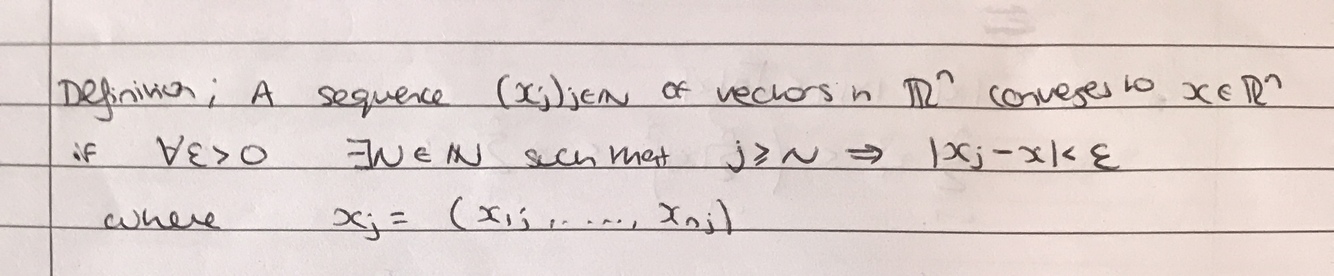 Definition; A sequence (xⱼ)j∈ℕ of vectors in ℝⁿ converges to x∈ℝⁿ
if ∀ε>0 ∃N∈ℕ such that j≥N ⇒ |xⱼ-x|<ε
where xⱼ = (x₁ⱼ,....., xₙⱼ)